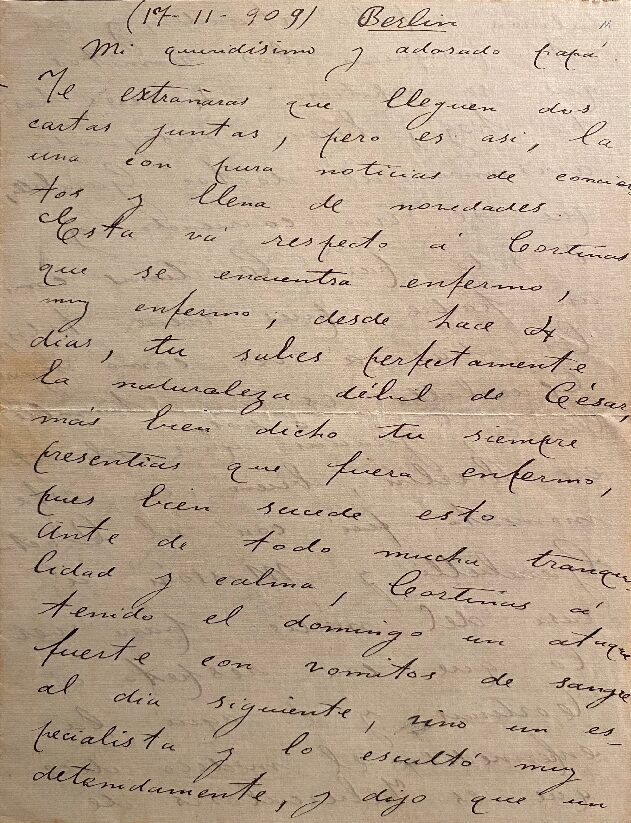 (17-11-909) Berlin
Mi queridísimo y adorado papá
Te extrañaras que lleguen dos
cartas juntas, pero es asi, la
una con pura noticias de concier
tos y llena de novedades.
Esta vá respecto á Cortinas
que se encuentra enfermo,
muy enfermo, desde hace 4
dias, tu sabes perfectamente
la naturaleza débil de César,
más bien dicho tu siempre
presentias que fuera enfermo,
pues bien sucede esto
Ante de todo mucha tranqui
lidad y calma, Cortinas á
tenido el domingo un ataque
fuerte con vomitos de sangre
al dia siguiente, vino un es-
pecialista y lo escultó muy
detenidamente, y dijo que un